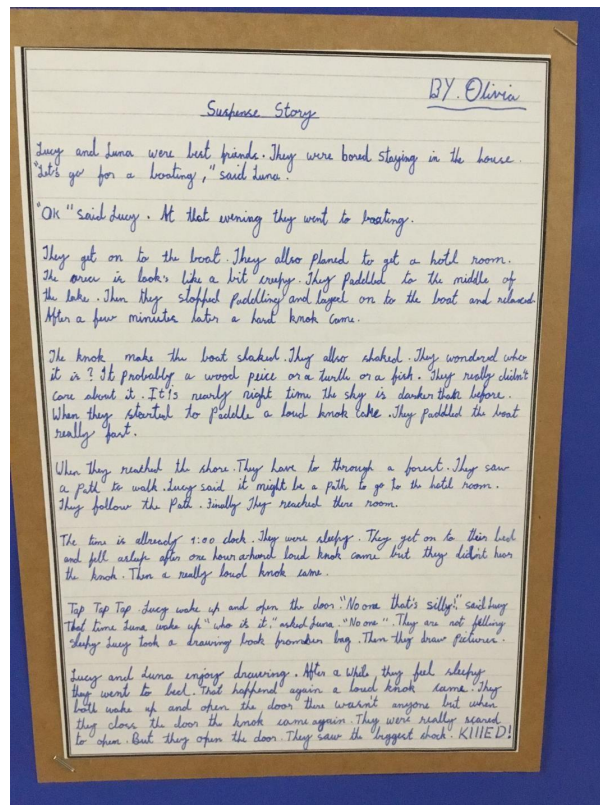 BY. Olivia
Suspense Story
Lucy and Luna were best friends. They were bored staying in the house.
"Let's go for a boating," said Luna.
"OK" said Lucy. At that evening they went to boating.
They get on to the boat. They allso planed to get a hotel room.
The area is look's like a bit creepy. They Paddled to the middle of
the lake. Then they stopped Puddling and layed on to the boat and relaxed.
After a few minuites later a hard knok came.
The knok make the boat shaked. They allso shaked. They wondered who
it is? It probably a wood peice or a turtle or a fish. They really didn't
care about it. It's nearly night time the sky is darker than before.
When they started to paddle a loud knok cake. They paddled the boat
really fast.
When they reached the shore. They have to through a forest. They saw
a path to walk. Lucy said it might be a path to go to the hotel room.
They follow the Path. Finally They reached there room.
The time is allready 9:00 clock. They were sleepy. They get on to their bed
and fell asleep after one hour a hard loud knok came but they didn't hear
the knok. Then a really loud knok came.
Tap Tap Tap. Lucy wake up and open the door "No one that's silly!" said Lucy
That time Luna wake up "who is it." asked Luna. "No one". They are not felling
sleepy Lucy took a drawing book from her bag. Then they draw pictures.
Lucy and Luna enjoy drawing. After a while they feel sleepy
they went to bed. That happend again a loud knok came. They
both wake up and open the door there wasn't anyone but when
they close the door the knok came again. They were really scared
to open. But they open the door. They saw the biggest shock. KIllED!